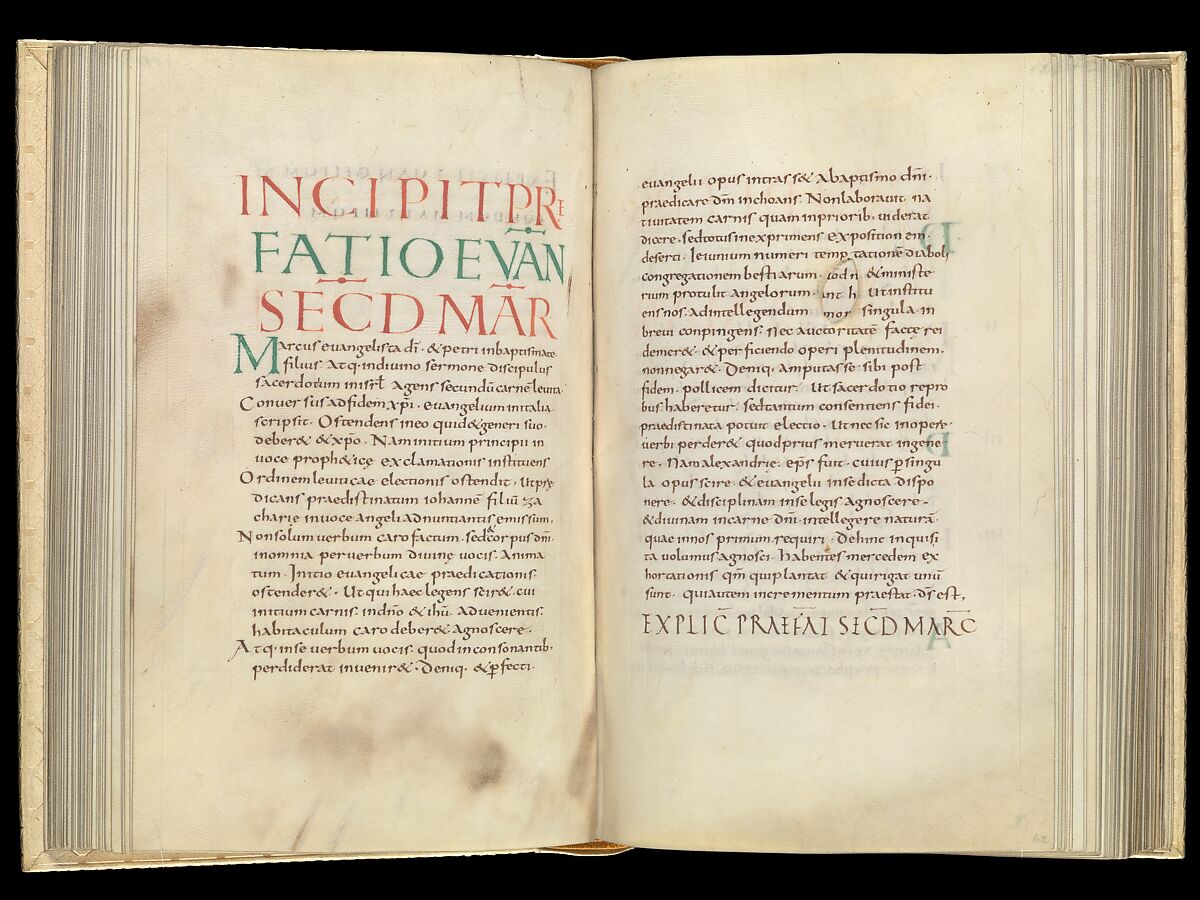 INCIPIT PRE
FATIO EVAN
SECD MAR
Marcus evangelista di · & petri in baptismate
filius Atq· in divino sermone discipulus
sacerdotium in isrl Agens secundu carne levita·
Conversus ad fidem xpi · evangelium in italia
scripsit · Ostendens in eo quid & generi suo·
deber& & xpo · Nam initium principii in
voce proph&icę exclamationis instituens
Ordinem leviticae electionis ostendit, Ut prę
dicans praedistinatum iohanne filiu za
charie in voce Angeli adnuntiantis emissum,
Non solum verbum caro factum · sed corpus dni·
in omnia per verbum divinę vocis · Anima
tum · Initio evangelicae praedicationis·
ostender& · Ut qui haec legens scir& · cui
initium carnis · in dno & ihu · Advenientis·
habitaculum caro deber& agnoscere·
Atq· in se verbum vocis · quod in consonantib·
perdiderat invenir& · Deniq· & pfecti·
evangelii opus intrass& A baptismo dni·
praedicare dm inchoans · Non laboravit na
tivitatem carnis quam in priorib· viderat
dicere · sed totus in exprimens exposition em·
deserti · Ieiunium numeri temptationē diaboli
congregationem bestiarum · & ministe
rium protulit angelorum · Ut institu
ens nos · Ad intellegendum singula · in
brevi conpingens · Nec auctoritatē factę rei
demer& · & perficiendo operi plenitudinem·
non negar& · Deniq· amputasse sibi post
fidem · pollicem dicitur · Ut sacerdotio repro
bus haberetur · sed tantum consentiens fidei·
praedistinata potuit electio · Ut nec sic in opere
verbi perder& quod prius meruerat in gene
re · Nam alexandrię · eps fuit · cuius p singu
la opus scire · & evangelii in se dicta dispo
nere · & disciplinam in se legis agnoscere·
& divinam in carne dni · intellegere naturā·
quae in nos primum requiri · Dehinc inquisi
ta volumus agnosci · habentes mercedem ex
hortationis qm qui plantat & qui rigat unū
sunt · qui autem incrementum praestat · ds est,
EXPLIC PRAEFAT SECD MARC
62